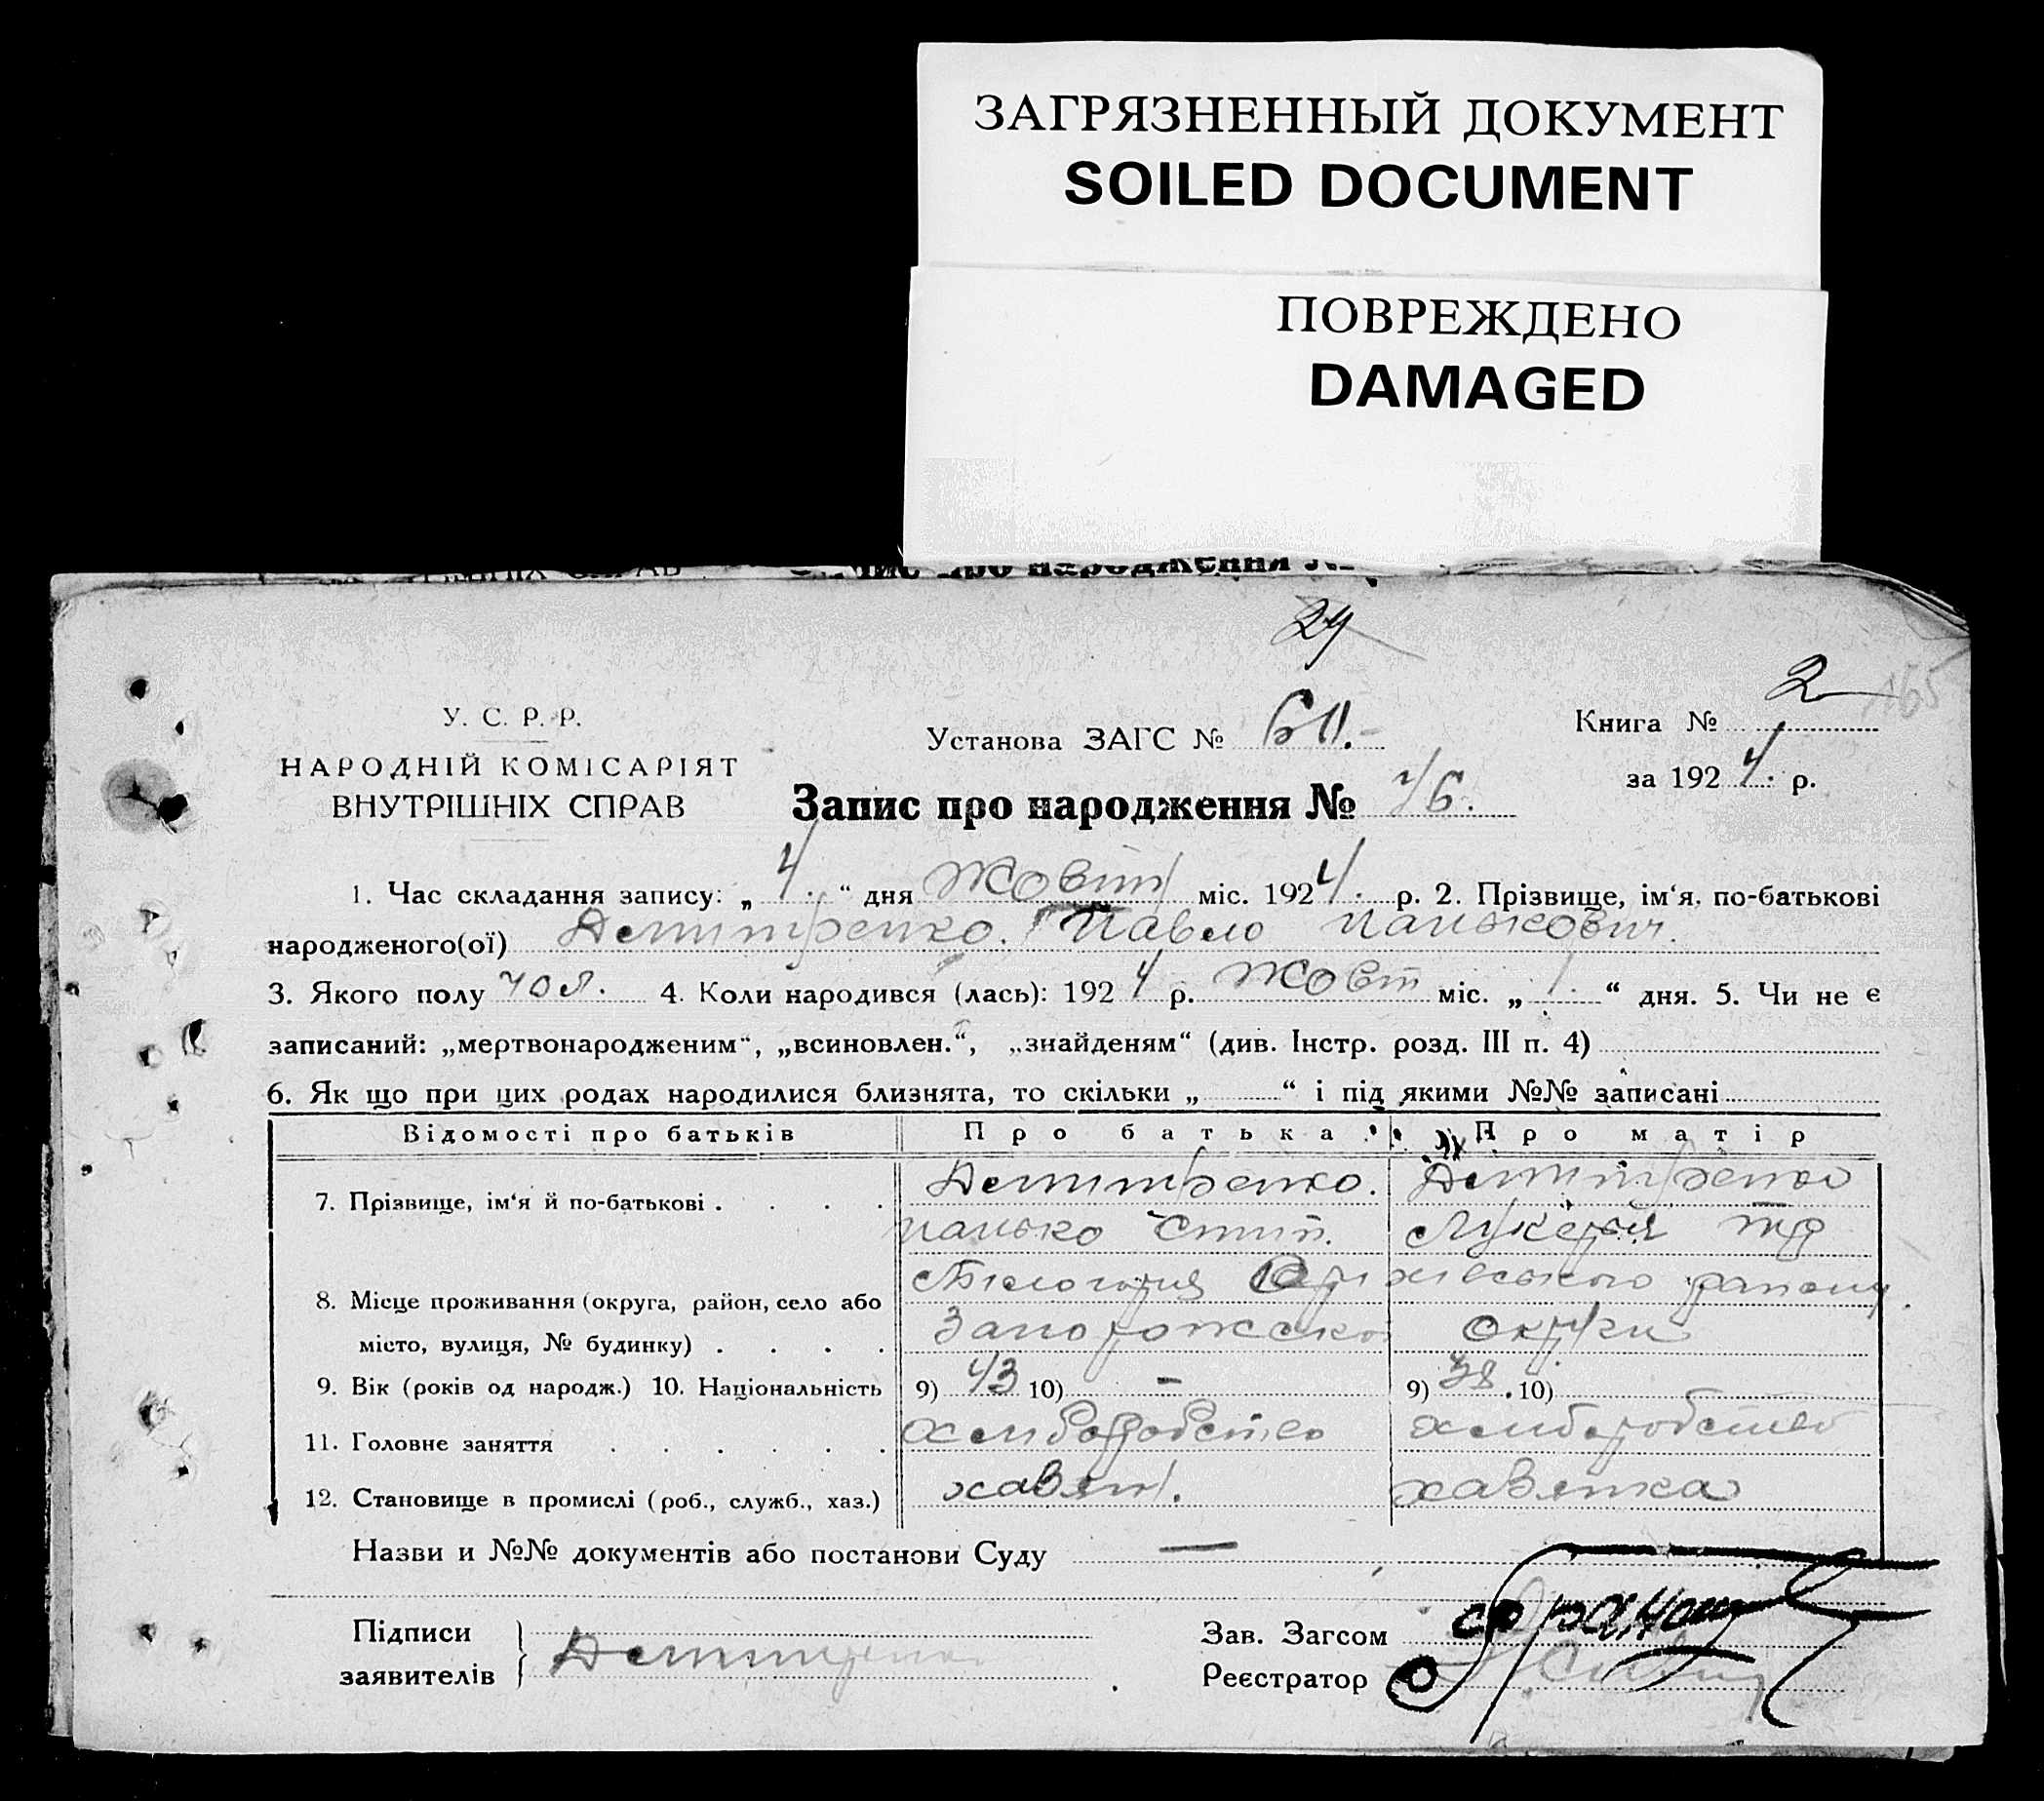 ЗАГРЯЗНЕННЫЙ ДОКУМЕНТ
SOILED DOCUMENT
ПОВРЕЖДЕНО
DAMAGED
про народження №
24
2
165
У. С. Р. Р.
НАРОДНІЙ КОМІСАРІЯТ
ВНУТРІШНІХ СПРАВ
Установа ЗАГС № 60.
Книга №
за 1924 р.
Запис про народження № 46.
1. Час складання запису: „ 4. “ дня Жовт міс. 1924. р. 2. Прізвище, ім‘я, по-батькові
народженого(ої) Демитренко. Павло Панькович.
3. Якого полу чол. 4. Коли народився (лась): 1924 р. Жовт міс. „ 1. “ дня. 5. Чи не є
записаний: „мертвонародженим“, „всиновлен.“, „знайденям“ (див. Інстр. розд. III п. 4)
6. Як що при цих родах народилися близнята, то скільки „ “ і під якими №№ записані
Відомості про батьків Про батька Про матір
7. Прізвище, ім‘я й по-батькові . . . . Демитренко. Демитренко
Панько Лукерья
8. Місце проживання (округа, район, село або Білогорня Оріхівського району.
місто, вулиця, № будинку) . . . . Запорожсько Округи
9. Вік (років од народж.) 10. Національність 9) 43 10) - 9) 38. 10)
11. Головне заняття . . . . . . хлиборобство хлиборобство
12. Становище в промислі (роб., служб., хаз.) хазяін. хазяйка
Назви и №№ документів або постанови Суду —
Підписи
заявителів Демитренко
Зав. Загсом
Реєстратор